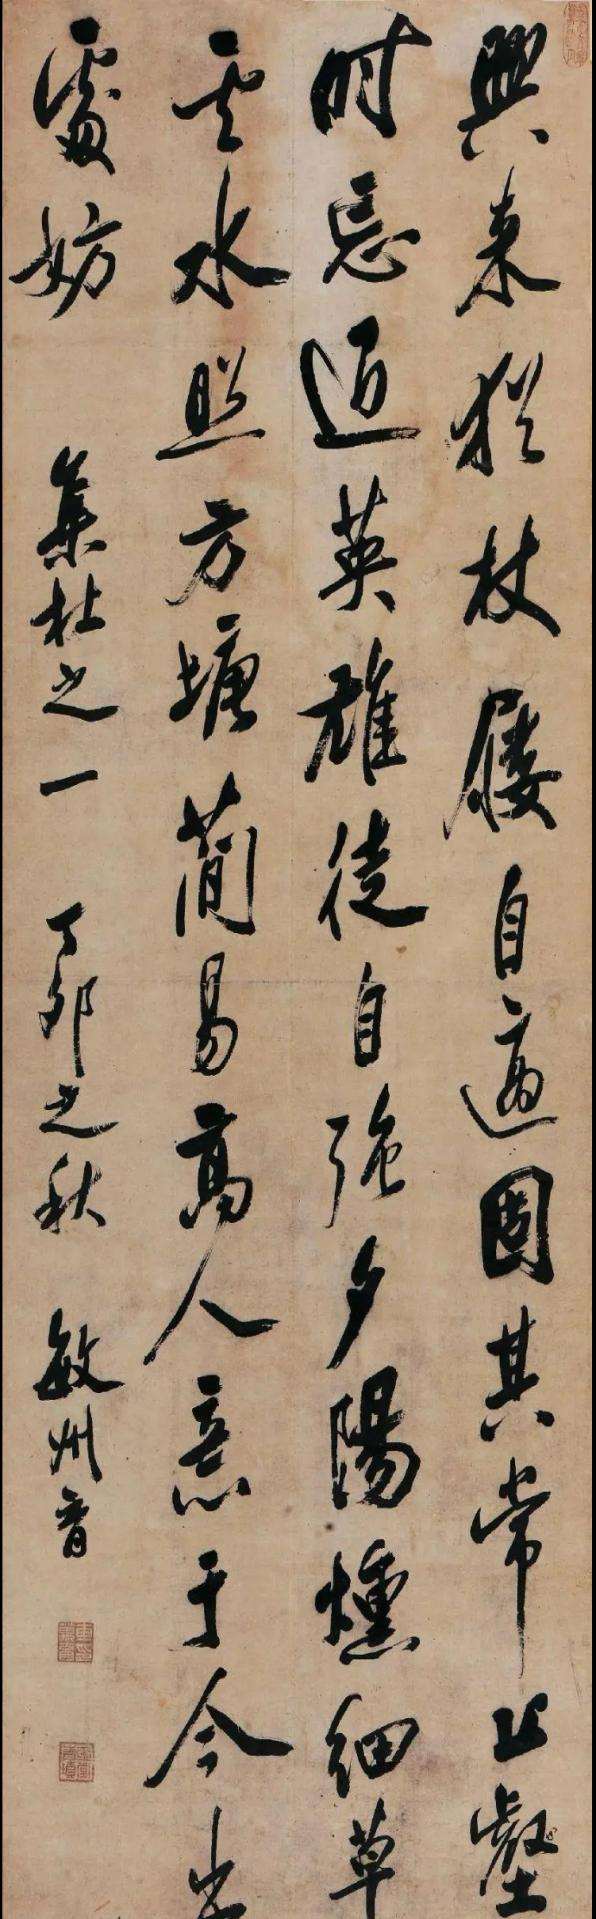 興來猶杖屨自適固其常丘壑
时忘返英雄徒自強夕陽燻細草
云水照方塘簡易高人意于今出
處妨
集杜之一 丁卯之秋 敏州育